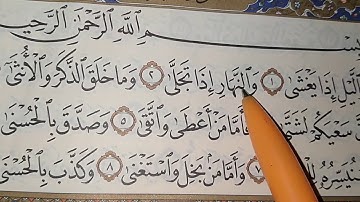 ـمِ اللَّهِ الرَّحْمَٰنِ الرَّحِيـ
الَّيْلِ إِذَا يَغْشَىٰ ۝١ وَالنَّهَارِ إِذَا تَجَلَّىٰ ۝٢ وَمَا خَلَقَ الذَّكَرَ وَالْأُنثَىٰ
سَعْيَكُمْ لَشَتَّىٰ فَأَمَّا مَنْ أَعْطَىٰ وَاتَّقَىٰ ۝٥ وَصَدَّقَ بِالْحُسْنَىٰ
فَسَنُيَسِّرُهُ لِلْ ۝٧ وَأَمَّا مَنْ بَخِلَ وَاسْتَغْنَىٰ ۝٨ وَكَذَّبَ بِالْحُسْنَىٰ